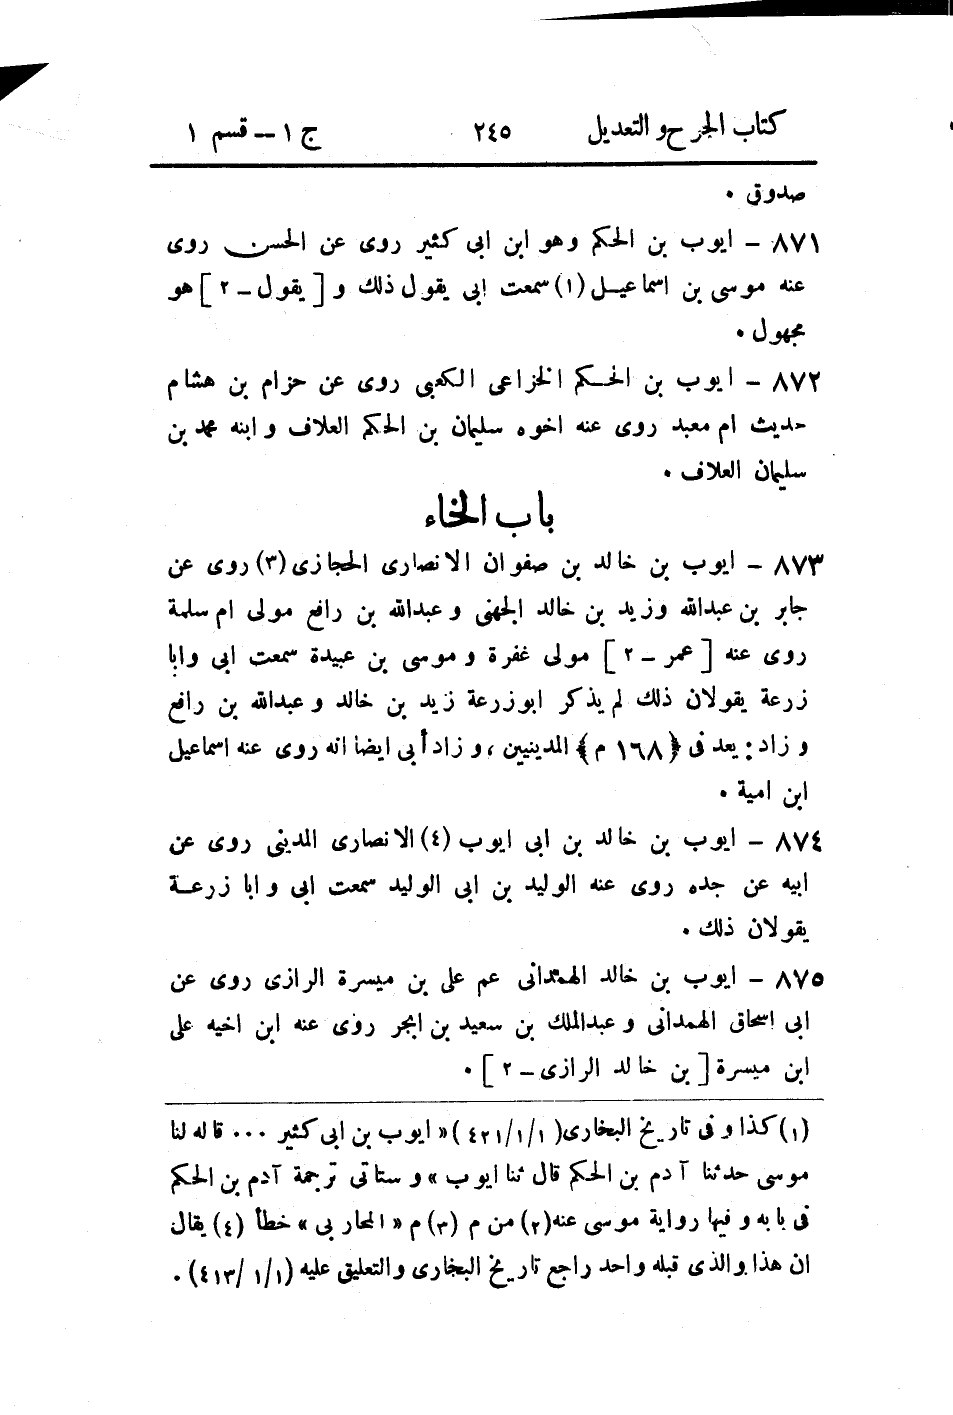 كتاب الجرح والتعديل ٢٤٥ ج ١ – قسم ١
صدوق .
٨٧١ – ايوب بن الحكم وهو ابن ابى كثير روى عن الحسن روى
عنه موسى بن اسماعيل (١) سمعت ابى يقول ذلك و [ يقول – ٢ ] هو
مجهول .
٨٧٢ – ايوب بن الحكم الخزاعى الكعبى روى عن حزام بن هشام
حديث ام معبد روى عنه اخوه سليمان بن الحكم العلاف وابنه محمد بن
سليمان العلاف .
باب الخاء
٨٧٣ – ايوب بن خالد بن صفوان الانصارى الحجازى (٣) روى عن
جابر بن عبدالله وزيد بن خالد الجهنى وعبدالله بن رافع مولى ام سلمة
روى عنه [ عمر – ٢ ] مولى غفرة وموسى بن عبيدة سمعت ابى وابا
زرعة يقولان ذلك لم يذكر ابوزرعة زيد بن خالد وعبدالله بن رافع
وزاد : يعد فى ﴿ ١٦٨ م ﴾ المدينيين ، وزاد أبى ايضا انه روى عنه اسماعيل
ابن امية .
٨٧٤ – ايوب بن خالد بن ابى ايوب (٤) الانصارى المدينى روى عن
ابيه عن جده روى عنه الوليد بن ابى الوليد سمعت ابى وابا زرعة
يقولان ذلك .
٨٧٥ – ايوب بن خالد الهمدانى عم على بن ميسرة الرازى روى عن
ابى اسحاق الهمدانى وعبدالملك بن سعيد بن ابجر روى عنه ابن اخيه على
ابن ميسرة [ بن خالد الرازى – ٢ ] .
(١) كذا وفى تاريخ البخارى (٤٢١/١/١) « ايوب بن ابى كثير ... قاله لنا
موسى حدثنا آدم بن الحكم قال ثنا ايوب » وستاتى ترجمة آدم بن الحكم
فى بابه وفيها رواية موسى عنه (٢) من م (٣) م « المحاربى » خطأ (٤) يقال
ان هذا والذى قبله واحد راجع تاريخ البخارى والتعليق عليه (٤١٣/١/١) .